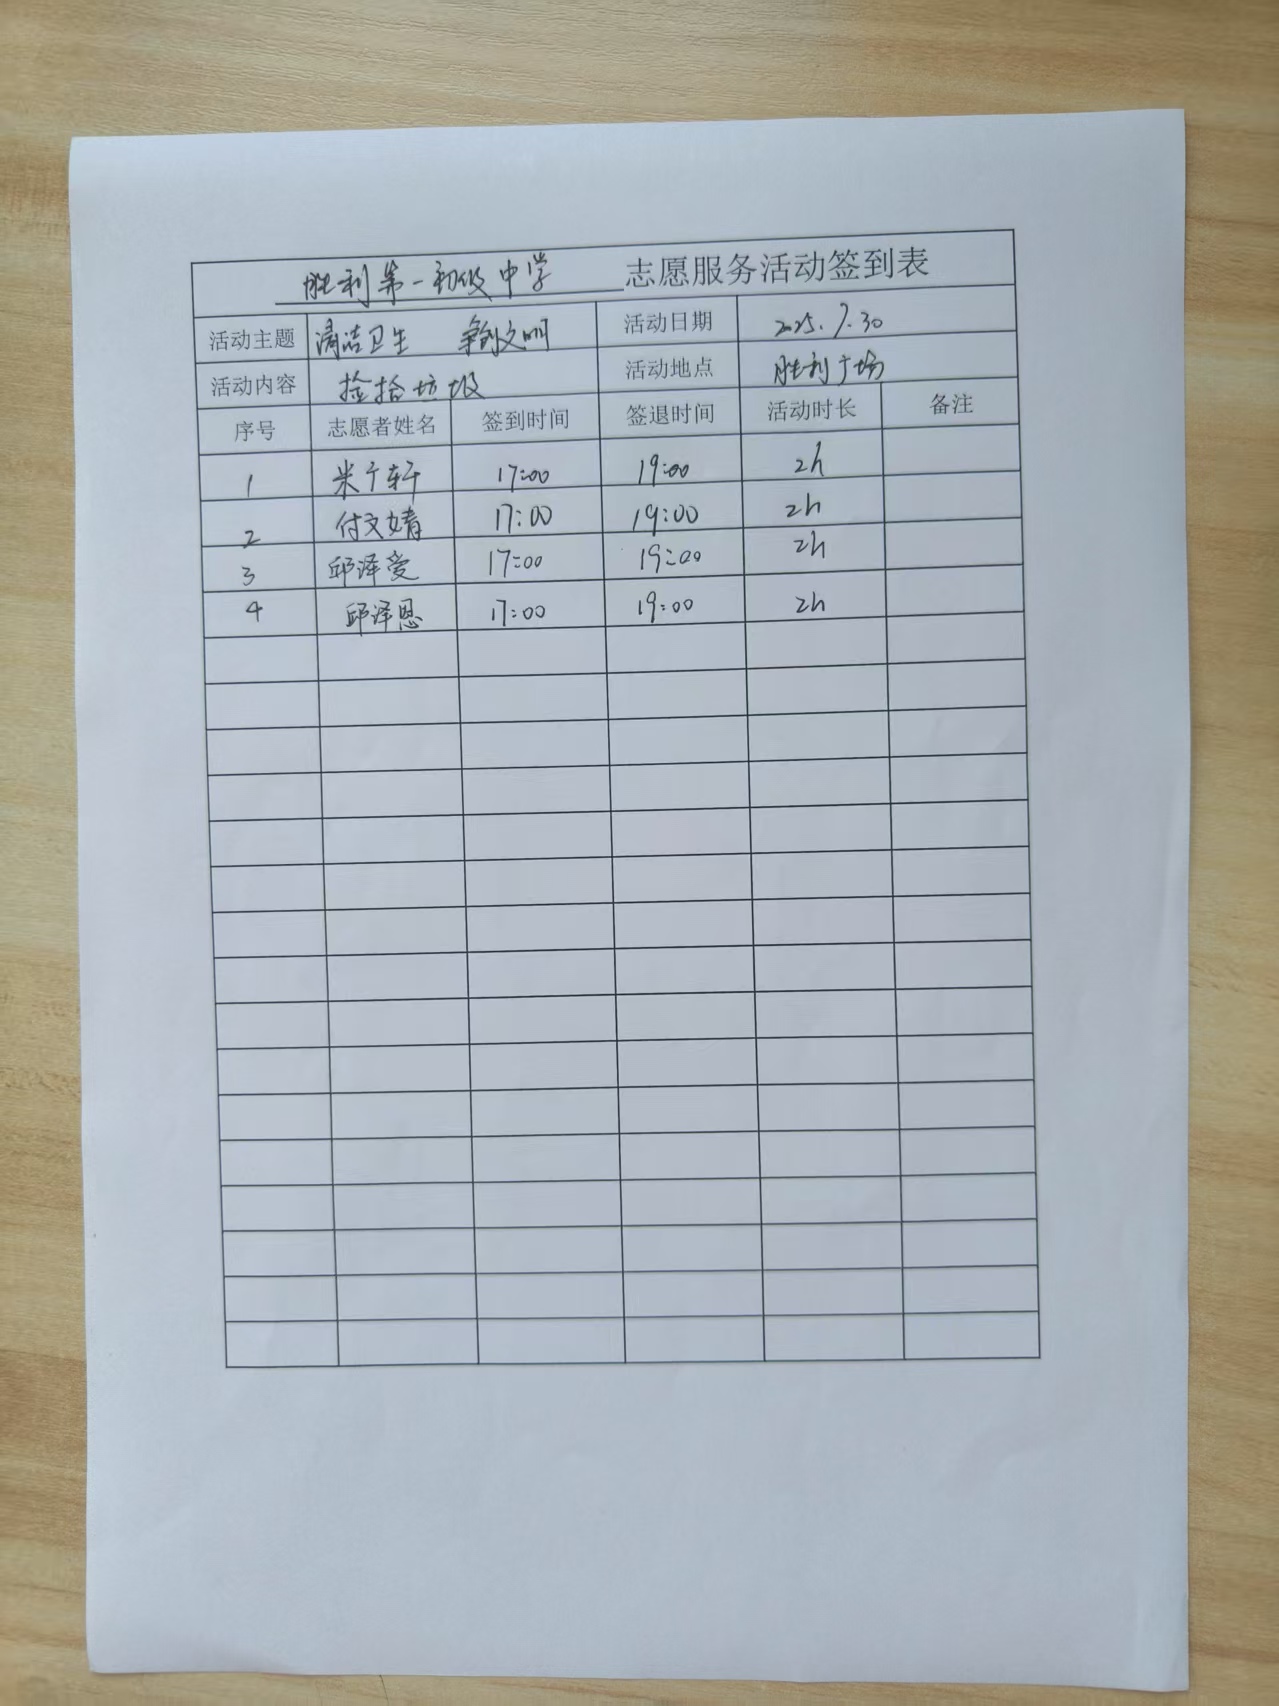 胜利第一初级中学 志愿服务活动签到表
活动主题 清洁卫生 争创文明 活动日期 2025.7.30
活动内容 捡拾垃圾 活动地点 胜利广场
序号 志愿者姓名 签到时间 签退时间 活动时长 备注
1 米于轩 17:00 19:00 2h
2 付文婧 17:00 19:00 2h
3 邱泽爱 17:00 19:00 2h
4 邱泽恩 17:00 19:00 2h